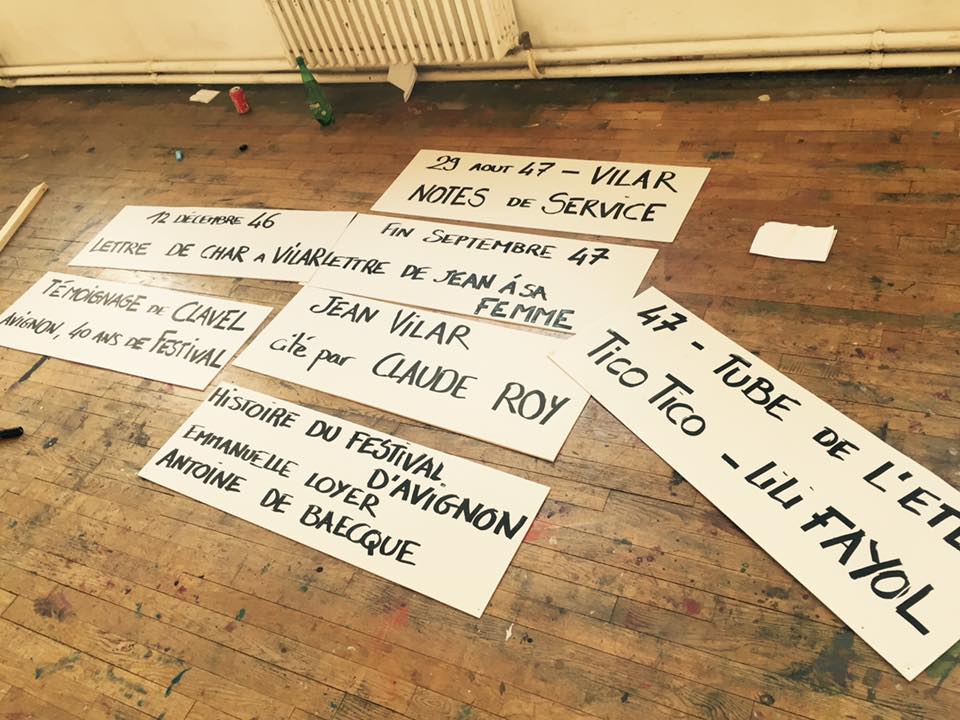 29 AOUT 47 - VILAR
NOTES DE SERVICE
12 DÉCEMBRE 46
LETTRE DE CHAR A VILAR
FIN SEPTEMBRE 47
LETTRE DE JEAN À SA
FEMME
TÉMOIGNAGE DE CLAVEL
AVIGNON, 40 ANS DE FESTIVAL
JEAN VILAR
cité par CLAUDE ROY
47 - TUBE DE L'ETE
TICO TICO - LILI FAYOL
HISTOIRE DU FESTIVAL
D'AVIGNON
EMMANUELLE LOYER
ANTOINE DE BAECQUE